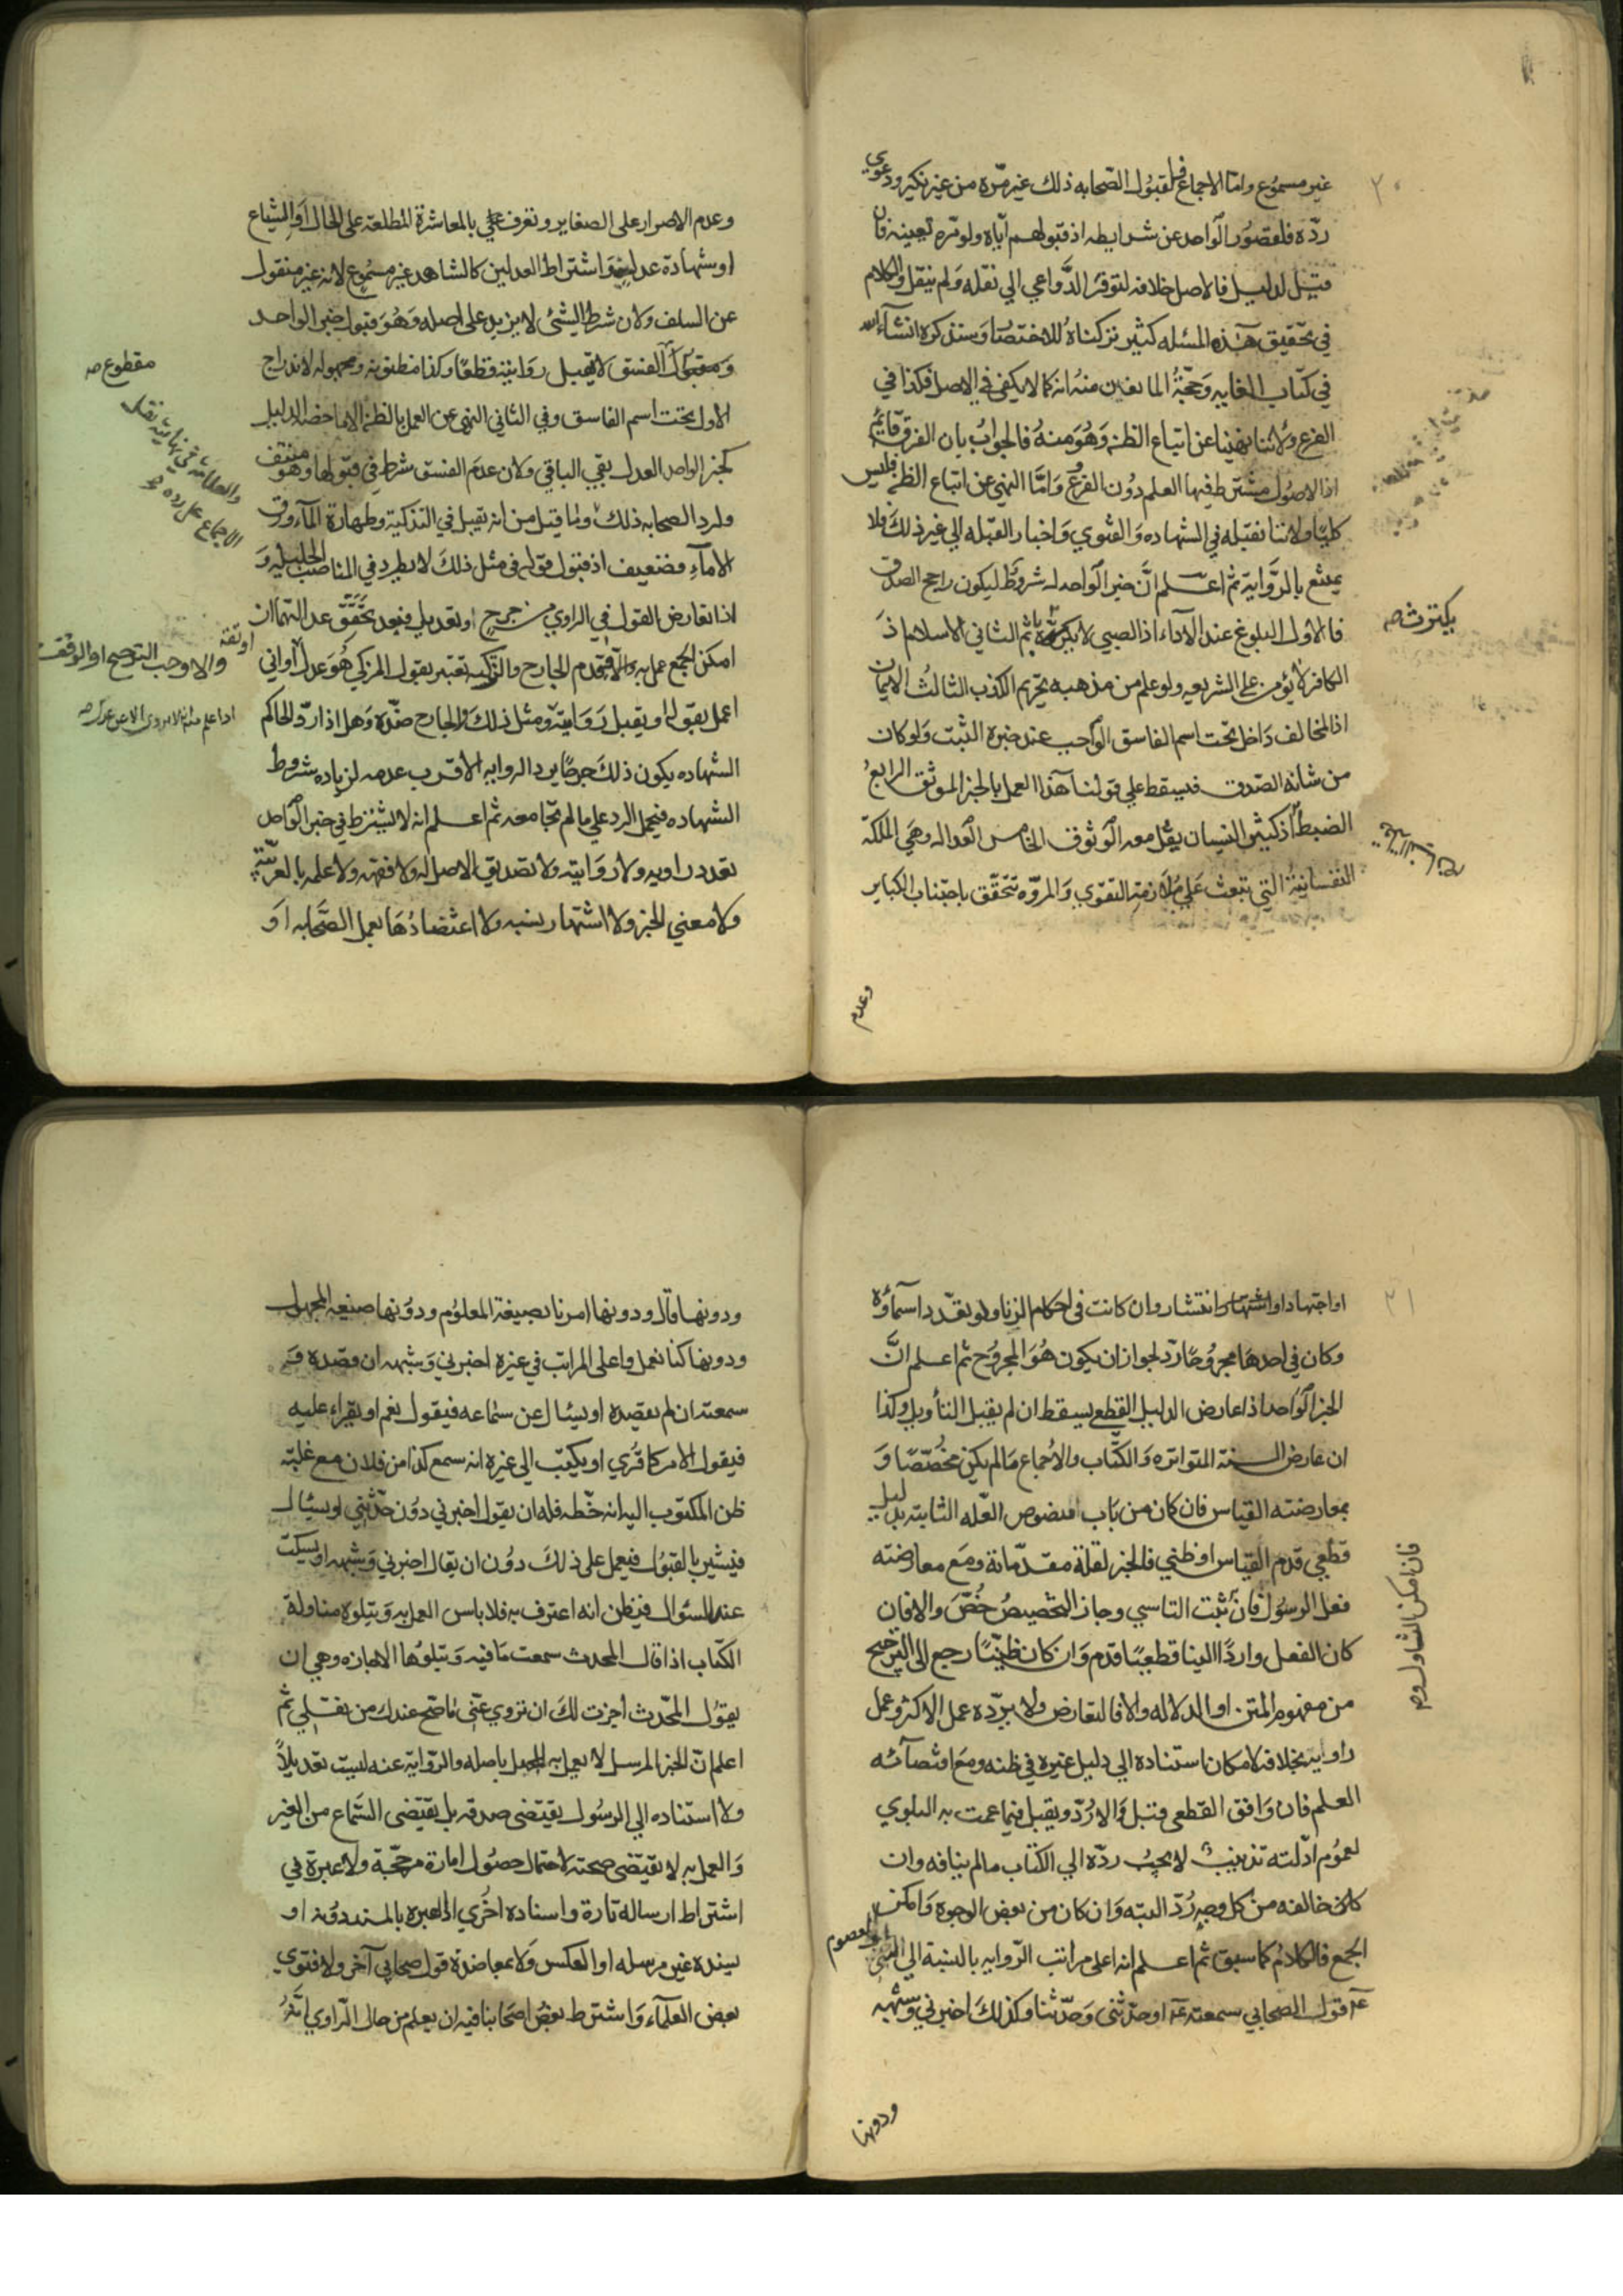 ٢٠
غير مسموع واما الاجماع فلقبول الصحابه ذلك غير مرّة من غير نكير ودعوي
ردّه فلقصور الواحد عن شرايطه اذ قبولهم آياه ولو مرّه تعينه فان
قيل لدليل فالاصل خلافه لتوفر الدّواعي الي نقله ولم ينقل والكلام
في تحقيق هذه المسئله كثير تركناه للاختصار وسنذكره انشآء الله
في كتاب الغايه وحجّة المانعين منه انه كما لا يكفي في الاصل فكذا في
الفرع ولاننا نهينا عن اتباع الظن وهو منه فالجواب بان الفرق قايم
اذ الاصول مشترط فيها العلم دون الفرع وامّا النهي عن اتباع الظن فليس
كليّا ولاننا نقبله في الشهاده والفتوي واخبار القبله الي غير ذلك فلا
يمتنع بالرّواية ثم اعلم انّ خبر الواحد له شروط ليكون راجح الصدق
فالاول البلوغ عند الآداء اذ الصبي لا يكترث ثم الثاني الاسلام اذ
يكترث صه
الكافر لا يؤمن علي الشريعه ولو علم من مذهبه تحريم الكذب الثالث الايمان
اذ المخالف داخل تحت اسم الفاسق الواجب عند خبره الثبت ولو كان
من شانه الصدق فيسقط علي قولنا هذا العمل بالخبر الموثق الرابع
الضبط اذ كثير النسيان يقل معه الوثوق الخامس العداله وهي الملكة
النفسانية التي تبعث علي ملازمة التقوي والمروّه تتحقق باجتناب الكباير
وعدم
وعدم الاصرار علي الصغاير وتعرف بالمعاشرة المطلعة علي الحال او الشياع
او شهادة عدلين واشتراط العدلين كالشاهد غير مسموع لانه غير منقول
عن السلف ولان شرط الشئ لا يزيد علي اصله وهو قبول خبر الواحد
الفسق لا تقبل روايته قطعا وكذا مظنونه ومجهوله لاندراج
مقطوع صه
الاول تحت اسم الفاسق وفي الثاني النهي عن العمل بالظن الا ما خصه الدليل
كخبر الواحد العدل بقي الباقي ولان عدم الفسق شرط في قبولها وهو منتف
ولرد الصحابه ذلك ولما قيل من انه تقبل في التذكية وطهارة المآء ورق
الامآء فضعيف اذ قبول قوله في مثل ذلك لا يطرد في المناصب الجليله و
اذا تعارض القول في الراوي من جرح او تعديل فبعد تحقق عدالتهما ان
امكن الجمع عمل به والا قدم الجارح والتزكيه تعتبر بقول المزكي هو عدل او اني
والا وجب الترجيح او الوقف
اعمل بقوله او يقبل روايته ومثل ذلك والجارح ضدّه وهل اذا ردّ الحاكم
الشهاده يكون ذلك جرحا يرد الروايه الاقرب عدمه لزياده شروط
الشهاده فيحمل الرد علي ما لم تجامعه ثم اعلم انه لا يشترط في خبر الواحد
تعدد راويه ولا روايته ولا تصديق الاصل له ولا فقهه ولا علمه بالعربية
ولا معني الخبر ولا اشتهار نسبه ولا اعتضادها بعمل الصحابه او
٢١
او اجتهاد او اشتهار وانتشار وان كانت في احكام الزنا ولو تعدّد اسمآؤه
وكان في احدها مجروحا ردّ لجواز ان يكون هو المجروح ثم اعلم انّ
الخبر الواحد اذا عارض الدليل القطعي يسقط ان لم يقبل التأويل وكذا
ان عارض السنة المتواتره والكتاب والاجماع ما لم يكن مخصّصا و
بمعارضته القياس فان كان من باب منصوص العله الثابته بدليل
قطعي قدم القياس او ظني فالخبر لقلة مقدّماته ومع معارضته
فعل الرسول فان ثبت التاسي وجاز التخصيص خصّ والا فان
فان امكن التاول صه
كان الفعل واردا الينا قطعيا قدم وان كان ظنيّا رجع الي الترجيح
من مفهوم المتن او الدلاله والا فالتعارض ولا يردّه عمل الاكثر وعمل
راويه بخلافه لامكان استناده الي دليل غيره في ظنه ومع اقتضآئه
العلم فان وافق القطعي قبل والا رُدّ ويقبل فيما عمت به البلوي
لعموم ادلّته تذنيب لا يجب ردّه الي الكتاب ما لم ينافه وان
كان خالفه من كل وجه رُدّ البته وان كان من بعض الوجوه وامكن
الجمع فالكلام كما سبق ثم اعلم انه اعلي مراتب الرّوايه بالنسبة الي النبي
او المعصوم
قول الصحابي سمعته او حدّثني وحدّثنا وكذلك اخبرني وشبهه
ودونها
ودونها قال ودونها امرنا بصيغة المعلوم ودونها صيغه المجهول
ودونها كنا نعمل واعلي المراتب في غيره اخبرني وشبهه ان قصده و
سمعته ان لم يقصده او يسئال عن سماعه فيقول نعم او يقراء عليه
فيقول الامر كما قري او يكتب الي غيره انه سمع كذا من فلان مع غلبة
ظن المكتوب اليه انه خطه فله ان يقول اخبرني دون حدّثني او يسئال
فيشير بالقبول فيعمل علي ذلك دون ان يقال اخبرني وشبهه او يسكت
عند السئوال فيظن انه اعترف به فلا باس العمل به ويتلوه مناولة
الكتاب اذا قال المحدث سمعت ما فيه ويتلوها الاجازه وهي ان
يقول المحّدث اجزت لك ان تروي عنّي ما صح عندك من نقلي ثم
اعلم انّ الخبر المرسل لا يعمل به للجهل باصله والرّواية عنه ليست تعديلاً
ولا استناده الي الرسول يقتضي صدقه بل يقتضي السّماع من الغير
والعمل به لا يقتضي صحته لاحتمال حصول امارة مرجحّة ولا عبرة في
اشتراط ارساله تارة واسناده اخري اذ العبره بالمسند دونه او
يسنده غير مرسله او العكس ولا بمعاضدة قول صحابي آخر ولا فتوي
بعض العلمآء واشترط بعض اصحابنا فيه ان يعلم من حال الرّاوي انّه